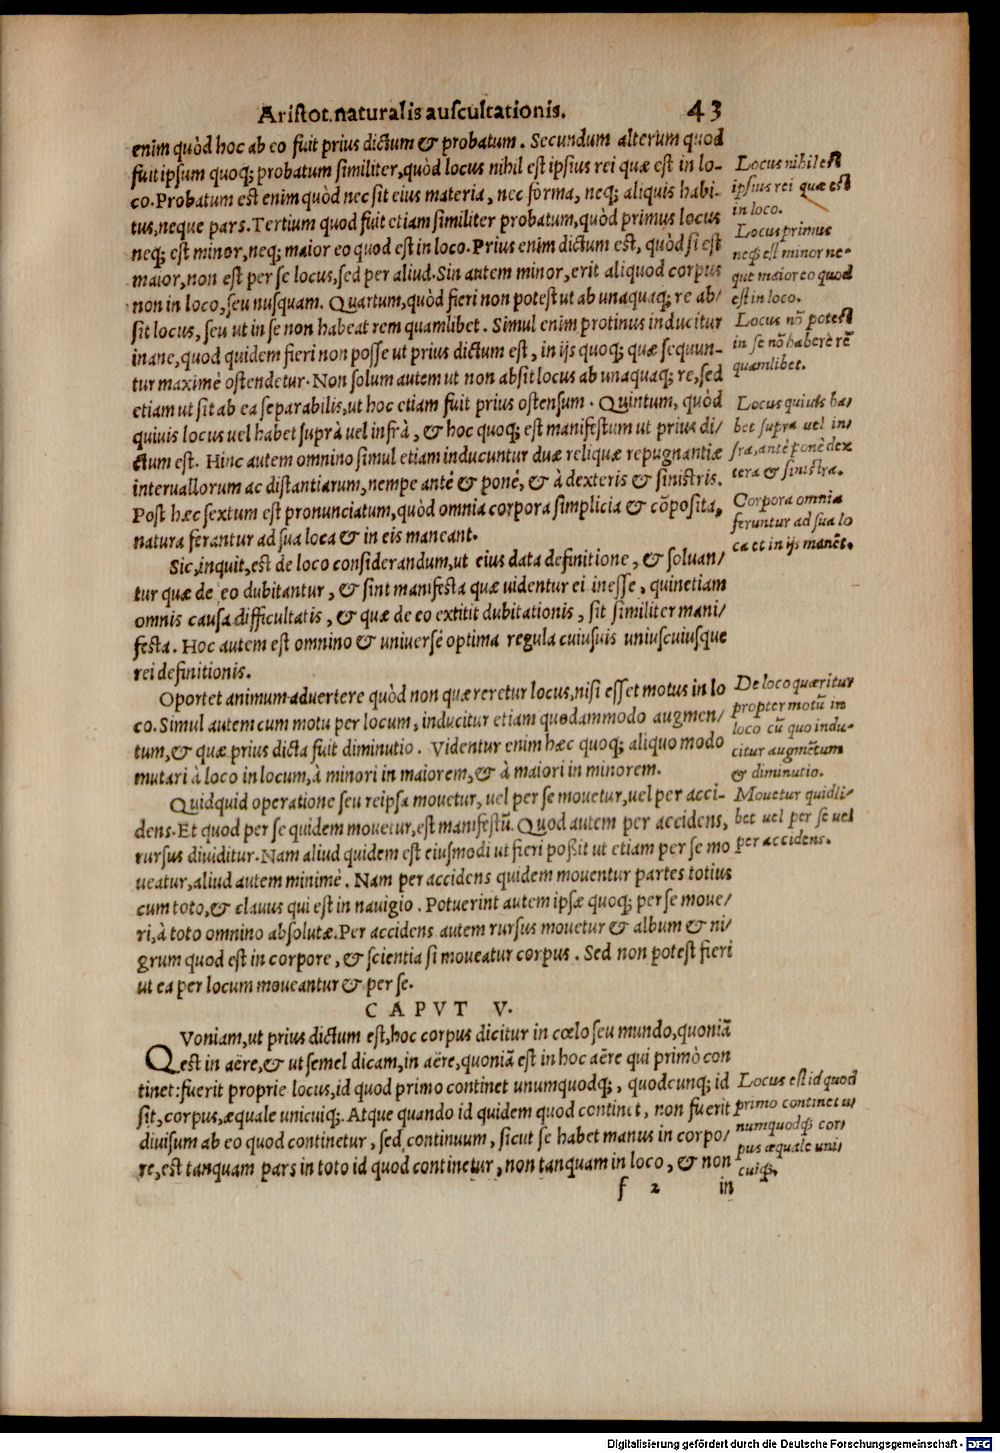 Aristot. naturalis auscultationis. 43
enim quòd hoc ab eo fuit prius dictum & probatum. Secundum alterum quod
fuit ipsum quoq; probatum similiter, quòd locus nihil est ipsius rei quæ est in lo-
co. Probatum est enim quòd nec sit eius materia, nec forma, neq; aliquis habi-
tus, neque pars. Tertium quod fuit etiam similiter probatum, quòd primus locus
neq; est minor, neq; maior eo quod est in loco. Prius enim dictum est, quòd si est
maior, non est per se locus, sed per aliud. Sin autem minor, erit aliquod corpus
non in loco, seu nusquam. Quartum, quòd fieri non potest ut ab unaquaq; re ab/
sit locus, seu ut in se non habeat rem quamlibet. Simul enim protinus inducitur
inane, quod quidem fieri non posse ut prius dictum est, in ijs quoq; quæ sequun-
tur maximè ostendetur. Non solum autem ut non absit locus ab unaquaq; re, sed
etiam ut sit ab ea separabilis, ut hoc etiam fuit prius ostensum. Quintum, quòd
quiuis locus uel habet suprà uel infrà, & hoc quoq; est manifestum ut prius di/
ctum est. Hinc autem omnino simul etiam inducuntur duæ reliquæ repugnantiæ
interuallorum ac distantiarum, nempe antè & ponè, & à dexteris & sinistris.
Post hæc sextum est pronunciatum, quòd omnia corpora simplicia & cõposita,
natura ferantur ad sua loca & in eis maneant.
Sic, inquit, est de loco considerandum, ut eius data definitione, & soluan/
tur quæ de eo dubitantur, & sint manifesta quæ uidentur ei inesse, quinetiam
omnis causa difficultatis, & quæ de eo extitit dubitationis, sit similiter mani/
festa. Hoc autem est omnino & uniuersè optima regula cuiusuis uniuscuiusque
rei definitionis.
Oportet animum aduertere quòd non quæreretur locus, nisi esset motus in lo
co. Simul autem cum motu per locum, inducitur etiam quodammodo augmen/
tum, & quæ prius dicta fuit diminutio. Videntur enim hæc quoq; aliquo modo
mutari à loco in locum, à minori in maiorem, & à maiori in minorem.
Quidquid operatione seu reipsa mouetur, uel per se mouetur, uel per acci-
dens. Et quod per se quidem mouetur, est manifestũ. Quod autem per accidens,
rursus diuiditur. Nam aliud quidem est eiusmodi ut fieri poßit ut etiam per se mo
ueatur, aliud autem minimè. Nam per accidens quidem mouentur partes totius
cum toto, & clauus qui est in nauigio. Potuerint autem ipsæ quoq; per se moue/
ri, à toto omnino absolutæ. Per accidens autem rursus mouetur & album & ni/
grum quod est in corpore, & scientia si moueatur corpus. Sed non potest fieri
ut ea per locum moueantur & per se.
CAPVT V.
QVoniam, ut prius dictum est, hoc corpus dicitur in cœlo seu mundo, quoniã
est in aëre, & ut semel dicam, in aëre, quoniã est in hoc aëre qui primò con
tinet: fuerit proprie locus, id quod primo continet unumquodq;, quodcunq; id
sit, corpus, æquale unicuiq;. Atque quando id quidem quod continet, non fuerit
diuisum ab eo quod continetur, sed continuum, sicut se habet manus in corpo/
re, est tanquam pars in toto id quod continetur, non tanquam in loco, & non
f 2 in
Locus nihil est
ipsius rei quæ est
in loco.
Locus primus
neq; est minor ne-
que maior eo quod
est in loco.
Locus nõ potest
in se nõ habere rẽ
quamlibet.
Locus quiuis ha/
bet supra uel in/
fra, antè ponè dex
tera & sinistra.
Corpora omnia
feruntur ad sua lo
ca et in ijs manẽt.
De loco quæritur
propter motũ in
loco cũ quo indu-
citur augmẽtum
& diminutio.
Mouetur quidli/
bet uel per se uel
per accidens.
Locus est id quod
primo continet u/
numquodq; cor/
pus æquale uni/
cuiq;.
Digitalisierung gefördert durch die Deutsche Forschungsgemeinschaft - DFG